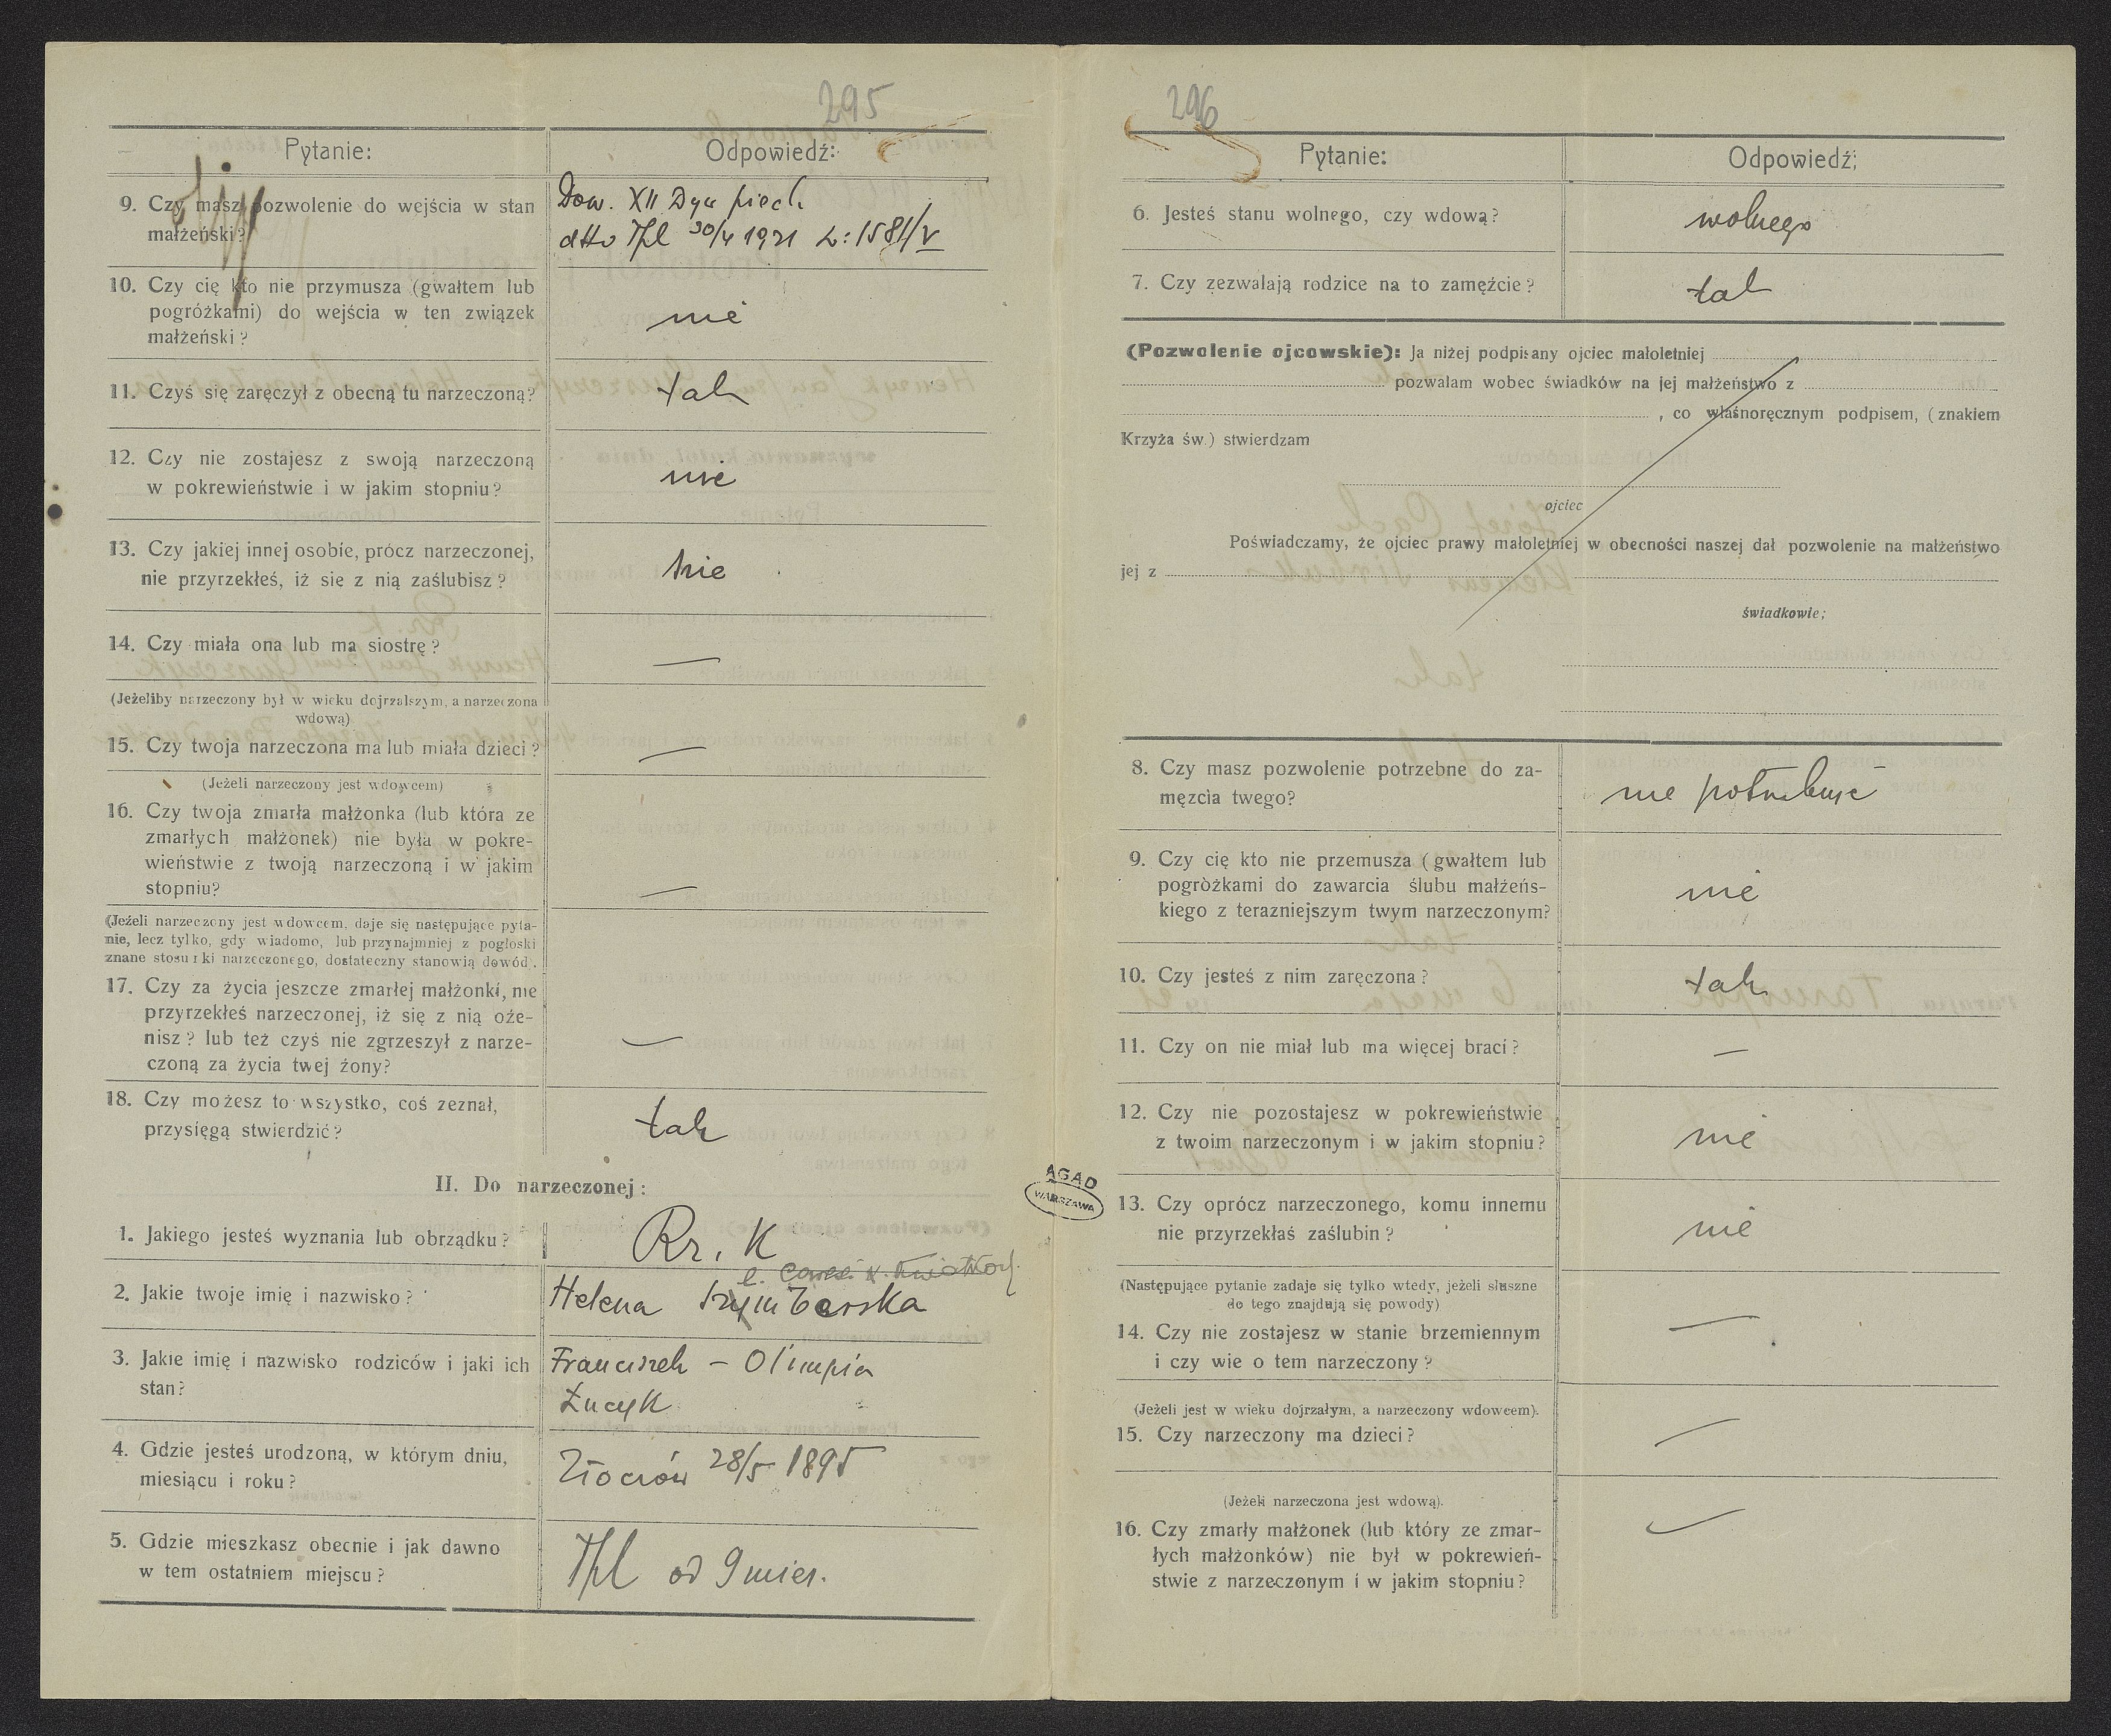 295
Pytanie:
Odpowiedź:
9. Czy masz pozwolenie do wejścia w stan
małżeński?
Dow. XII Dyw piech
dtto Tpl 30/4 1921 L: 1581/V
10. Czy cię kto nie przymusza (gwałtem lub
pogróżkami) do wejścia w ten związek
małżeński?
nie
11. Czyś się zaręczył z obecną tu narzeczoną?
tak
12. Czy nie zostajesz z swoją narzeczoną
w pokrewieństwie i w jakim stopniu?
nie
13. Czy jakiej innej osobie, prócz narzeczonej,
nie przyrzekłeś, iż sie z nią zaślubisz?
nie
14. Czy miała ona lub ma siostrę?
—
(Jeżeliby narzeczony był w wieku dojrzalszym, a narzeczona
wdową)
15. Czy twoja narzeczona ma lub miała dzieci?
—
(Jeżeli narzeczony jest wdowcem)
16. Czy twoja zmarła małżonka (lub która ze
zmarłych małżonek) nie była w pokre-
wieństwie z twoją narzeczoną i w jakim
stopniu?
—
(Jeżeli narzeczony jest wdowcem, daje się następujące pyta-
nie, lecz tylko, gdy wiadomo, lub przynajmniej z pogłoski
znane stosunki narzeczonego, dostateczny stanowią dowód.
17. Czy za życia jeszcze zmarłej małżonki, nie
przyrzekłeś narzeczonej, iż się z nią oże-
nisz? lub też czyś nie zgrzeszył z narze-
czoną za życia twej żony?
—
18. Czy możesz to wszystko, coś zeznał,
przysięgą stwierdzić?
tak
II. Do narzeczonej:
1. Jakiego jesteś wyznania lub obrządku?
Rz. K
2. Jakie twoje imię i nazwisko?
Helena Szymberska
3. Jakie imię i nazwisko rodziców i jaki ich
stan?
Franciszek — Olimpia
Łucyk
4. Gdzie jesteś urodzoną, w którym dniu,
miesiącu i roku?
Złoczów 28/5 1895
5. Gdzie mieszkasz obecnie i jak dawno
w tem ostatniem miejscu?
Tpl od 9 mies.
AGAD
WARSZAWA
296
Pytanie:
Odpowiedź;
6. Jesteś stanu wolnego, czy wdową?
wolnego
7. Czy zezwalają rodzice na to zamęźcie?
tak
(Pozwolenie ojcowskie): Ja niżej podpisany ojciec małoletniej
pozwalam wobec świadków na jej małżeństwo z
, co własnoręcznym podpisem, (znakiem
Krzyża św.) stwierdzam
ojciec
Poświadczamy, że ojciec prawy małoletniej w obecności naszej dał pozwolenie na małżeństwo
jej z
świadkowie;
8. Czy masz pozwolenie potrzebne do za-
męzcia twego?
nie potrzebuje
9. Czy cię kto nie przemusza (gwałtem lub
pogròżkami do zawarcia ślubu małżeńs-
kiego z terazniejszym twym narzeczonym?
nie
10. Czy jesteś z nim zaręczona?
tak
11. Czy on nie miał lub ma więcej braci?
—
12. Czy nie pozostajesz w pokrewieństwie
z twoim narzeczonym i w jakim stopniu?
nie
13. Czy oprócz narzeczonego, komu innemu
nie przyrzekłaś zaślubin?
nie
(Następujące pytanie zadaje się tylko wtedy, jeżeli słuszne
do tego znajdują się powody)
14. Czy nie zostajesz w stanie brzemiennym
i czy wie o tem narzeczony?
—
(Jeżeli jest w wieku dojrzałym, a narzeczony wdowcem).
15. Czy narzeczony ma dzieci?
—
(Jeżeli narzeczona jest wdową).
16. Czy zmarły małżonek (lub który ze zmar-
łych małżonków) nie był w pokrewień-
stwie z narzeczonym i w jakim stopniu?
—